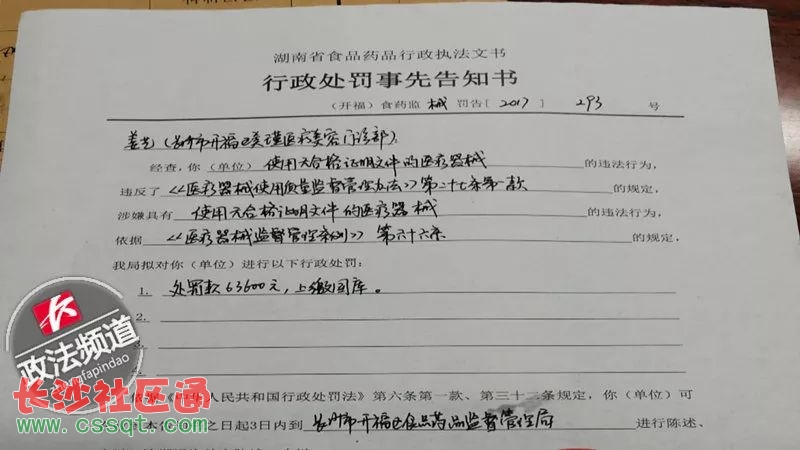 湖南省食品药品行政执法文书
行政处罚事先告知书
（开福）食药监 械 罚告[ 2017 ] 293 号
姜艺(长沙市开福区美瑾医疗美容门诊部):
经查，你（单位）使用无合格证明文件的医疗器械的违法行为，
违反了《医疗器械使用质量监督管理办法》第二十七条第一款的规定，
涉嫌具有 使用无合格证明文件的医疗器械 的违法行为，
依据《医疗器械监督管理条例》第六十六条 的规定，
我局拟对你（单位）进行以下行政处罚：
1. 处罚款63600元，上缴国库。
2.
3.
4.
依据《中华人民共和国行政处罚法》第六条第一款、第三十二条规定，你（单位）可
之日起3日内到 长沙市开福区食品药品监督管理局 进行陈述、
政法频道
fapindao
长沙社区通
www.cssqt.com